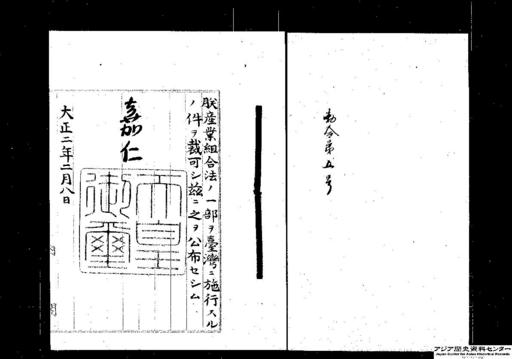 勅令第五号
朕産業組合法ノ一部ヲ臺灣ニ施行スル
ノ件ヲ裁可シ茲ニ之ヲ公布セシム
嘉仁
天皇
御璽
大正二年二月八日
内閣
アジア歴史資料センター
Japan Center for Asian Historical Records